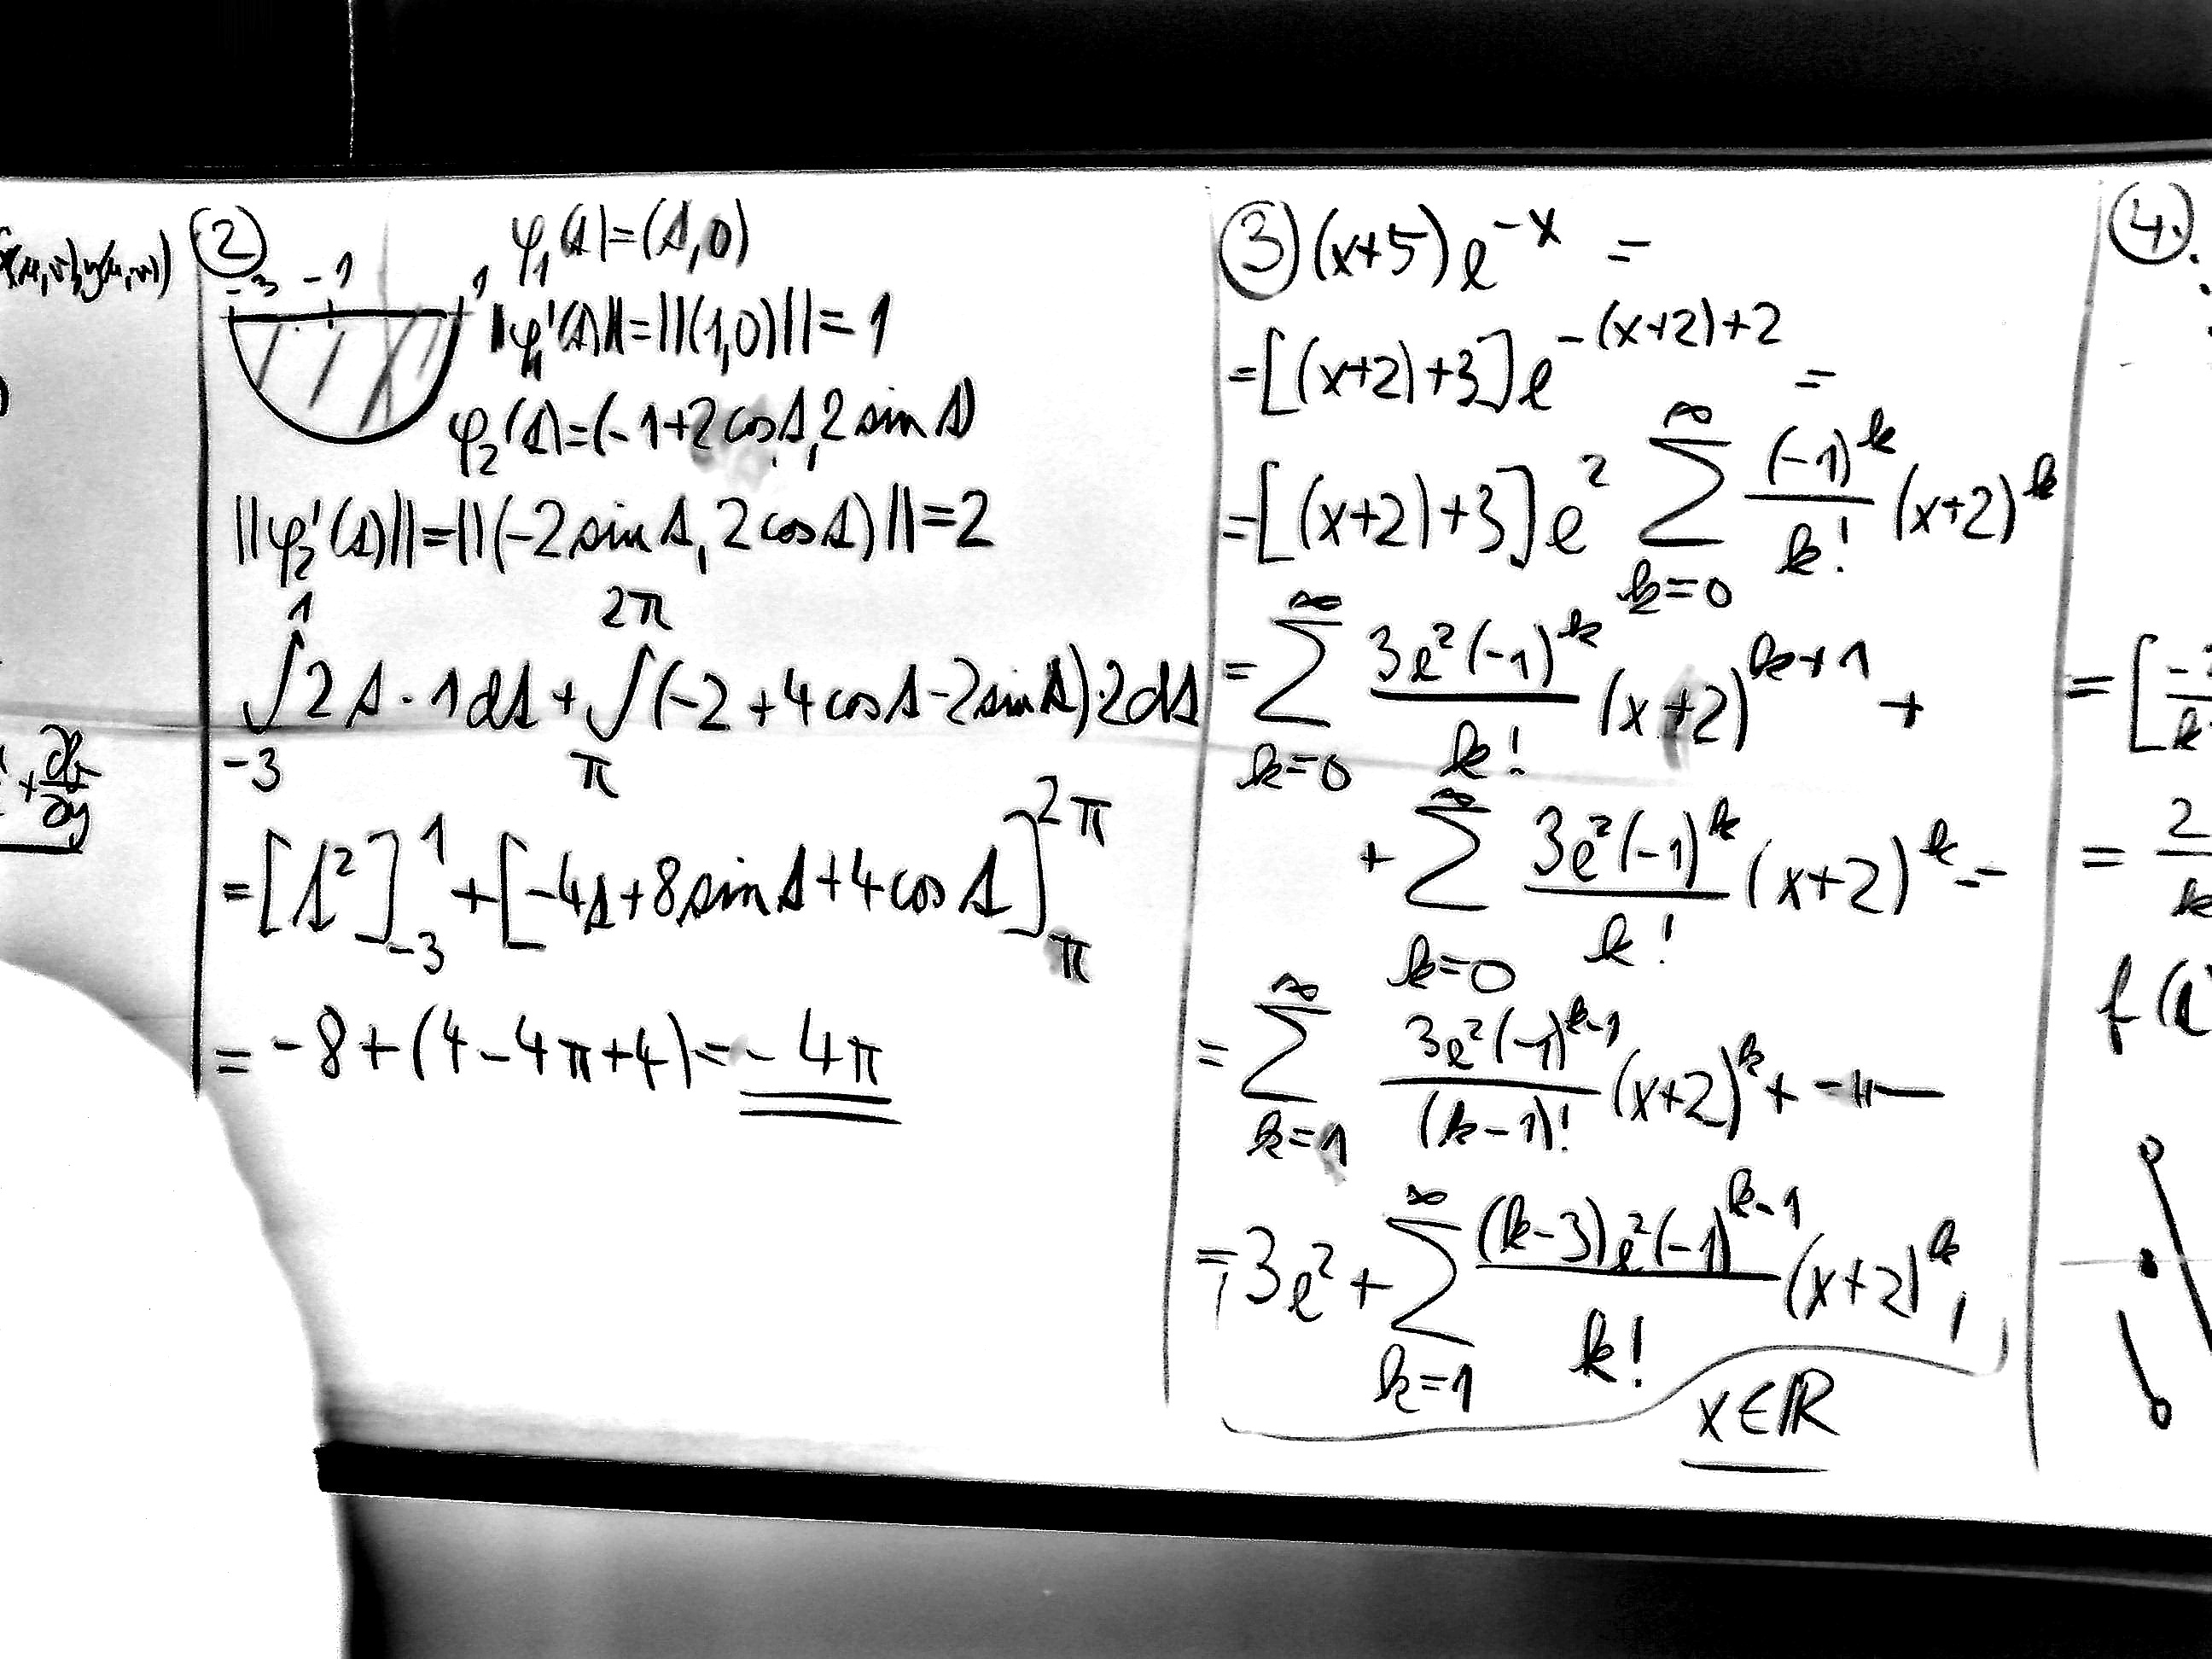 (2)
-3 -1 1
φ₁(s)=(s,0)
||φ₁'(s)||=||(1,0)||=1
φ₂(s)=(-1+2cos s, 2 sin s)
||φ₂'(s)||=||(-2 sin s, 2 cos s)||=2
∫_{-3}^{1} 2s·1ds + ∫_{π}^{2π} (-2+4cos s-2sin s)·2ds
=[s²]_{-3}^{1}+[-4s+8sin s+4cos s]_{π}^{2π}
=-8+(4-4π+4)=-4π
(3) (x+5)e^{-x} =
=[(x+2)+3]e^{-(x+2)+2} =
=[(x+2)+3]e² ∑_{k=0}^{∞} (-1)^k/k! (x+2)^k
=∑_{k=0}^{∞} 3e²(-1)^k/k! (x+2)^{k+1} +
+∑_{k=0}^{∞} 3e²(-1)^k/k! (x+2)^k =
=∑_{k=1}^{∞} 3e²(-1)^{k-1}/(k-1)! (x+2)^k + -〃-
=3e²+∑_{k=1}^{∞} (k-3)e²(-1)^{k-1}/k! (x+2)^k,
x∈ℝ
(4).